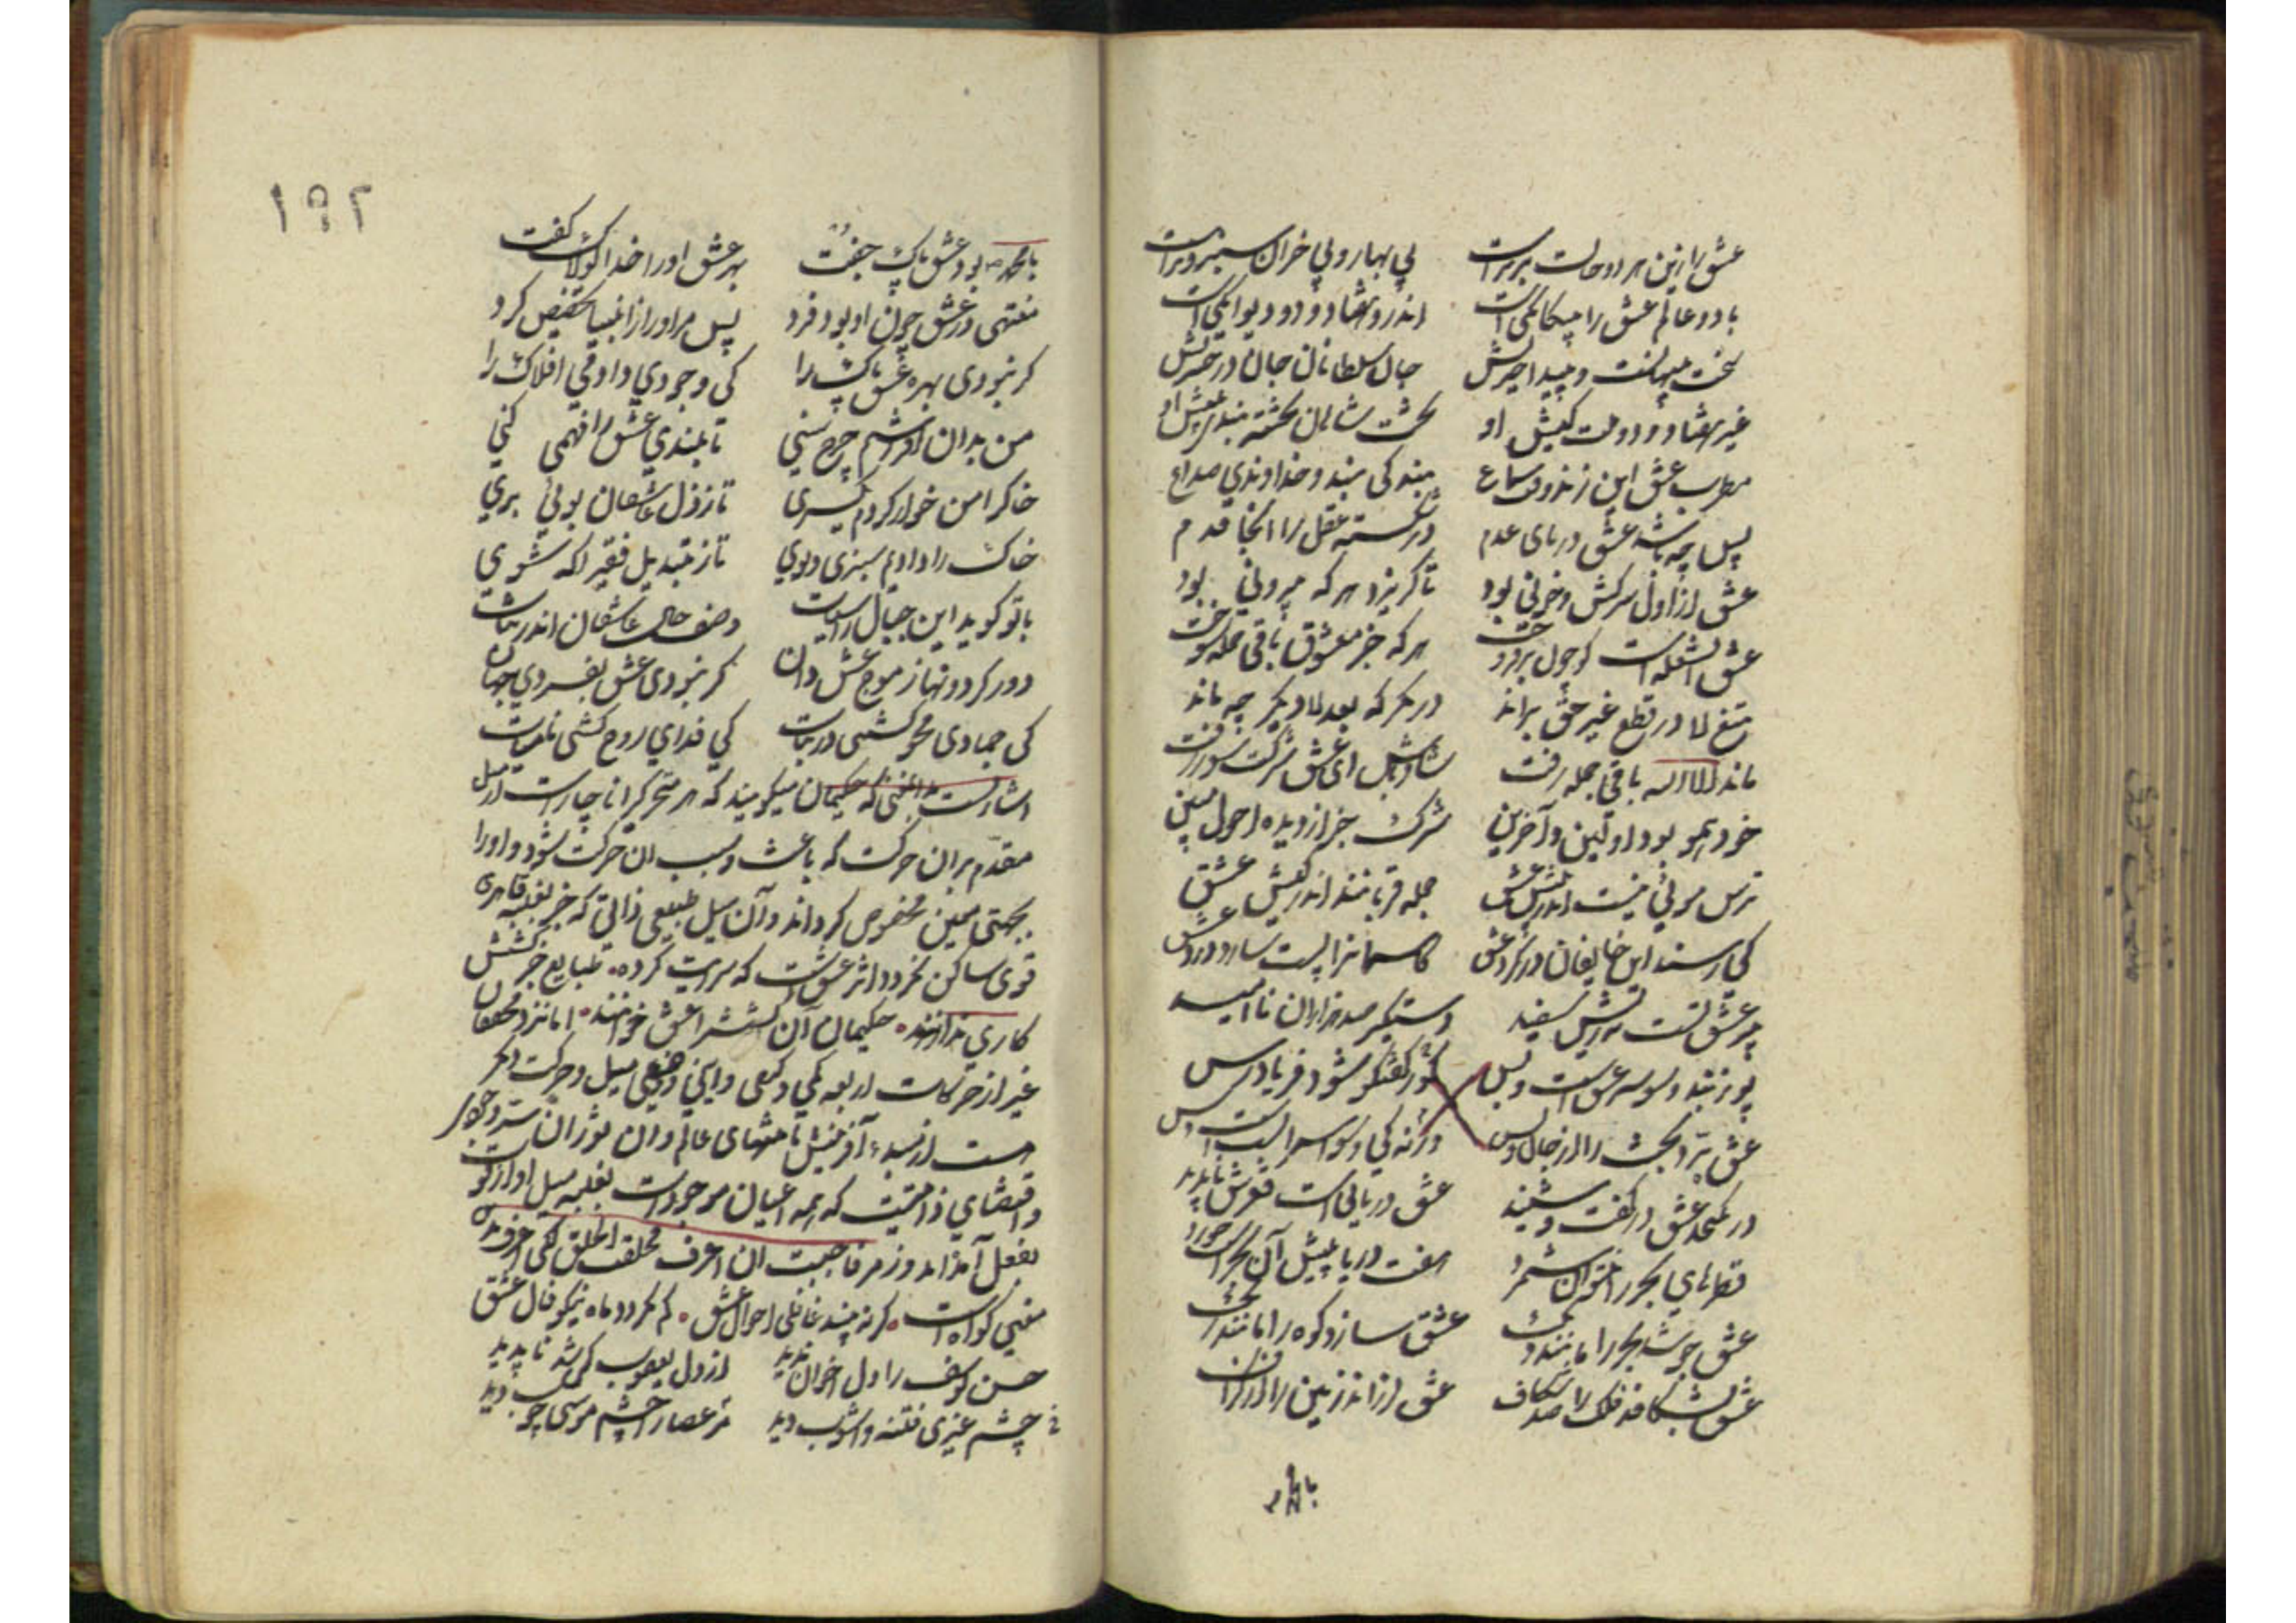 عشق را زین هر دو حالت برترست بی بهار و بی خزان سبز و ترست
با دو عالم عشق را بیگانگی است اندرو هفتاد و دو دیوانگی است
سخت پنهانست و پیدا حیرتش جان سلطانان جان در حسرتش
غیر هفتاد و دو ملت کیش او تخت شاهان تخته بندی پیش او
مطرب عشق این زند وقت سماع بندگی بند و خداوندی صداع
پس چه باشد عشق دریای عدم در شکسته عقل را آنجا قدم
عشق از اول سرکش و خونی بود تا گریزد هر که بیرونی بود
عشق آن شعله است کو چون بر فروخت هر که جز معشوق باقی جمله سوخت
تیغ لا در قتل غیر حق براند در نگر که بعد لا دیگر چه ماند
ماند الا الله باقی جمله رفت شاد باش ای عشق شرکت سوز زفت
خود همو بود اولین و آخرین شرک جز از دیده احول مبین
ترس مویی نیست اندر پیش عشق جمله قربانند اندر کیش عشق
کی رسند این خایفان در گرد عشق کاسمانرا پست سازد درد عشق
پیر عشق تست نه ریش سفید دستگیر صد هزاران ناامید
پوزبند وسوسه عشق است و بس
عشق برد بحث را ای جان و بس کو ز گفتگو شود فریادرس
ورنه کی وسواس را بسته است کس
در نگنجد عشق در گفت و شنید عشق دریایی است قعرش ناپدید
قطرهای بحر را نتوان شمرد هفت دریا پیش آن بحر است خورد
عشق جوشد بحر را مانند دیگ عشق ساید کوه را مانند ریگ
عشق بشکافد فلک را صد شکاف عشق لرزاند زمین را از گزاف
با محمد
۱۹۲
با محمد بود عشق پاک جفت بهر عشق او را خدا لولاک گفت
منتهی در عشق چون او بود فرد پس مر او را ز انبیا تخصیص کرد
گر نبودی بهر عشق پاک را کی وجودی دادمی افلاک را
من بدان افراشتم چرخ سنی تا بلندی عشق را فهمی کنی
خاک را من خوار کردم یکسری تا ز ذل عاشقان بویی بری
خاک را دادیم سبزی و نوی تا ز تبدیل فقیر آگه شوی
با تو گوید این جبال راسیات وصف حال عاشقان اندر ثبات
دور گردونها ز موج عشق دان گر نبودی عشق بفسردی جهان
کی جمادی محو گشتی در نبات کی فدای روح گشتی نامیات
اشارتست بدانمعنی که حکیمان میگویند که هر متحرکرا ناچار است از میل
مقدم بر آن حرکت که باعث و سبب آن حرکت شود و او را
بجهتی معین مخصوص گرداند و آن میل طبیعی ذاتی که جز بغلبه قاهری
قوی ساکن نگردد اثر عشق است که سرایت کرده طبایع جز کشش
کاری ندارند حکیمان آن کشش را عشق خوانند اما نزد محققان
غیر از حرکات اربعه کمی و کیفی و اینی و وضعی میل و حرکت دیگر
هست از مبدء آفرینش تا منتهای عالم و آن
و اقتضای ذاتیت که همه اعیان موجودات بغلبه میل او از قوت
بفعل آمده اند و رمز فاحببت ان اعرف فخلقت الخلق لکی اعرف بدین
معنی گواه است گر نبیند غافلی احوال عشق کم نگردد ماه نیکو فال عشق
حسن یوسف را دل اخوان ندید از دل یعقوب کی شد ناپدید
چشم غیری فتنه و آشوب دید مر عصا را چشم موسی چوب دید